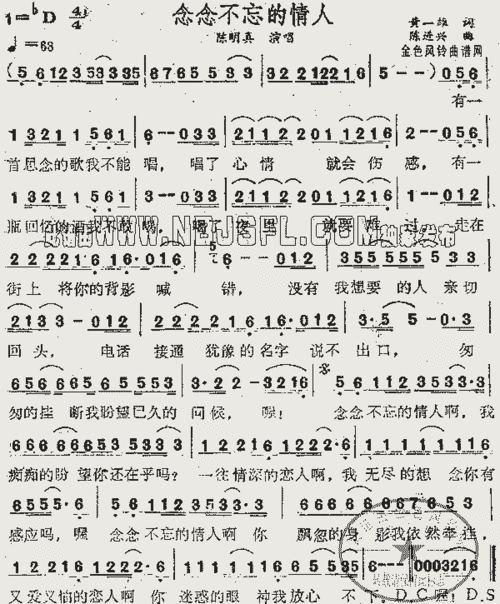 1=♭D 4/4
♩=68
念念不忘的情人
陈明真 演唱
黄一雄 词
陈进兴 曲
金色风铃曲谱网
(5 6 123 53335 | 8765533 | 3212212 16 | 5-- ) 056 |
有一
1 321 1 561 | 6--033 | 2112 201 1216 | 2--056 |
首思念的歌我不能 唱, 唱了 心 情 就会 伤 感, 有一
1 321 1 561 | 3--033 | 2112 201 1216 | 1--012 |
瓶回忆的酒我不敢喝, 喝了 夜里 就要 难 过, 走在
WWW.NBJSFL.COM
2 2 2221 16·016 | 6--012 | 355 555533 |
街上 将你的背影 喊 错, 没有 我想要 的 人 亲切
2133-012 | 2 2 2216 16·012 | 3·5 5-0·3 |
回 头, 电话 接通 犹像的名字 说不 出口, 匆
656 665 65553 | 3·2 2-3216 | 5 6 112 3533·3 |
匆的挂 断我盼望已久的 问候, 喔! 念念不忘的情人啊, 我
666 66653 5333 | 1 2216 1222·6 | 1 111 1 116 |
痴痴的盼 望你还在乎吗? 一往情深的恋人啊, 我 无尽的想 念你有
6555·6 | 56 112 3533·3 | 666 66 67653 |
感应吗, 喔 念念不忘的情人啊 你 飘忽的身 影我依然牵挂,
1 2216 1222·6 | 111 11 1656 | 6--- 0003216 |
又爱又恼的恋人啊 你 迷惑的眼 神我放心 不 下, D.C 喔! D.S